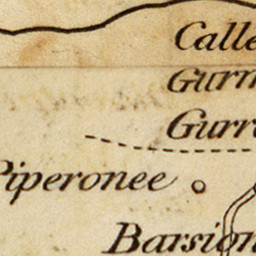 Calle
Gurr
Piperonee
Barsion